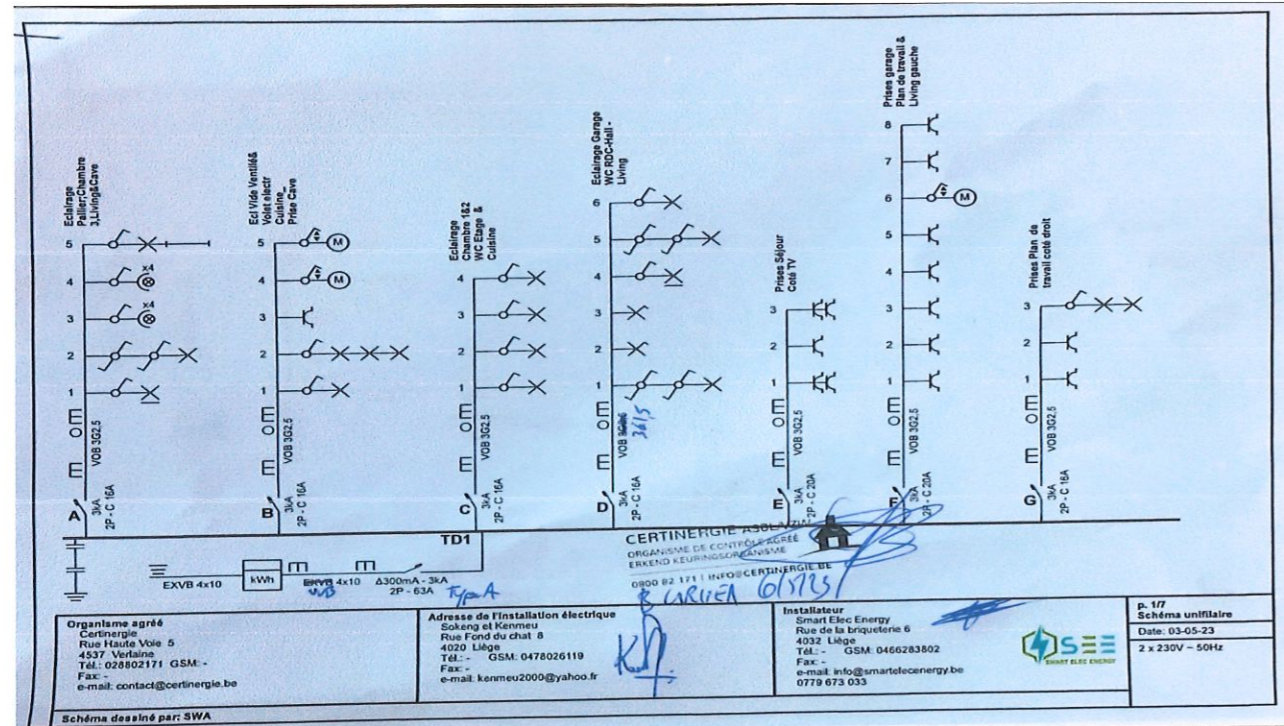 Eclairage
Pallier;Chambre
3,Living&Cave
5
4
x4
3
x4
2
1
VOB 3G2,5
A
3kA
2P - C 16A
Ecl Vide Ventilé&
Volet electr
Cuisine_
Prise Cave
5
M
4
M
3
2
1
VOB 3G2,5
B
3kA
2P - C 16A
Eclairage
Chambre 1&2
WC Etage &
Cuisine
4
3
2
1
VOB 3G2,5
C
3kA
2P - C 16A
Eclairage Garage
WC RDC-Hall -
Living
6
5
4
3
2
1
VOB
3G1,5
D
3kA
2P - C 16A
Prises Séjour
Coté TV
3
2
1
VOB 3G2,5
E
3kA
2P - C 20A
Prises garage
Plan de travail &
Living gauche
8
7
6
M
5
4
3
2
1
VOB 3G2,5
F
3kA
2P - C 20A
Prises Plan de
travail coté droit
3
2
1
VOB 3G2,5
G
3kA
2P - C 20A
TD1
EXVB 4x10
kWh
EXVB 4x10
VVB
Δ300mA - 3kA
2P - 63A
Type A
CERTINERGIE ASBL/VZW
ORGANISME DE CONTRÔLE AGRÉÉ
ERKEND KEURINGSORGANISME
0800 82 171 | INFO@CERTINERGIE.BE
Organisme agréé
Certinergie
Rue Haute Voie 5
4537 Verlaine
Tél.: 028802171 GSM: -
Fax: -
e-mail: contact@certinergie.be
Adresse de l'Installation électrique
Sokeng et Kenmeu
Rue Fond du chat 8
4020 Liège
Tél.: - GSM: 0478026119
Fax: -
e-mail: kenmeu2000@yahoo.fr
Installateur
Smart Elec Energy
Rue de la briqueterie 6
4032 Liège
Tél.: - GSM: 0466283802
Fax: -
e-mail: info@smartelecenergy.be
0779 673 033
SEE
SMART ELEC ENERGY
p. 1/7
Schéma unifilaire
Date: 03-05-23
2 x 230V ~ 50Hz
Schéma dessiné par: SWA